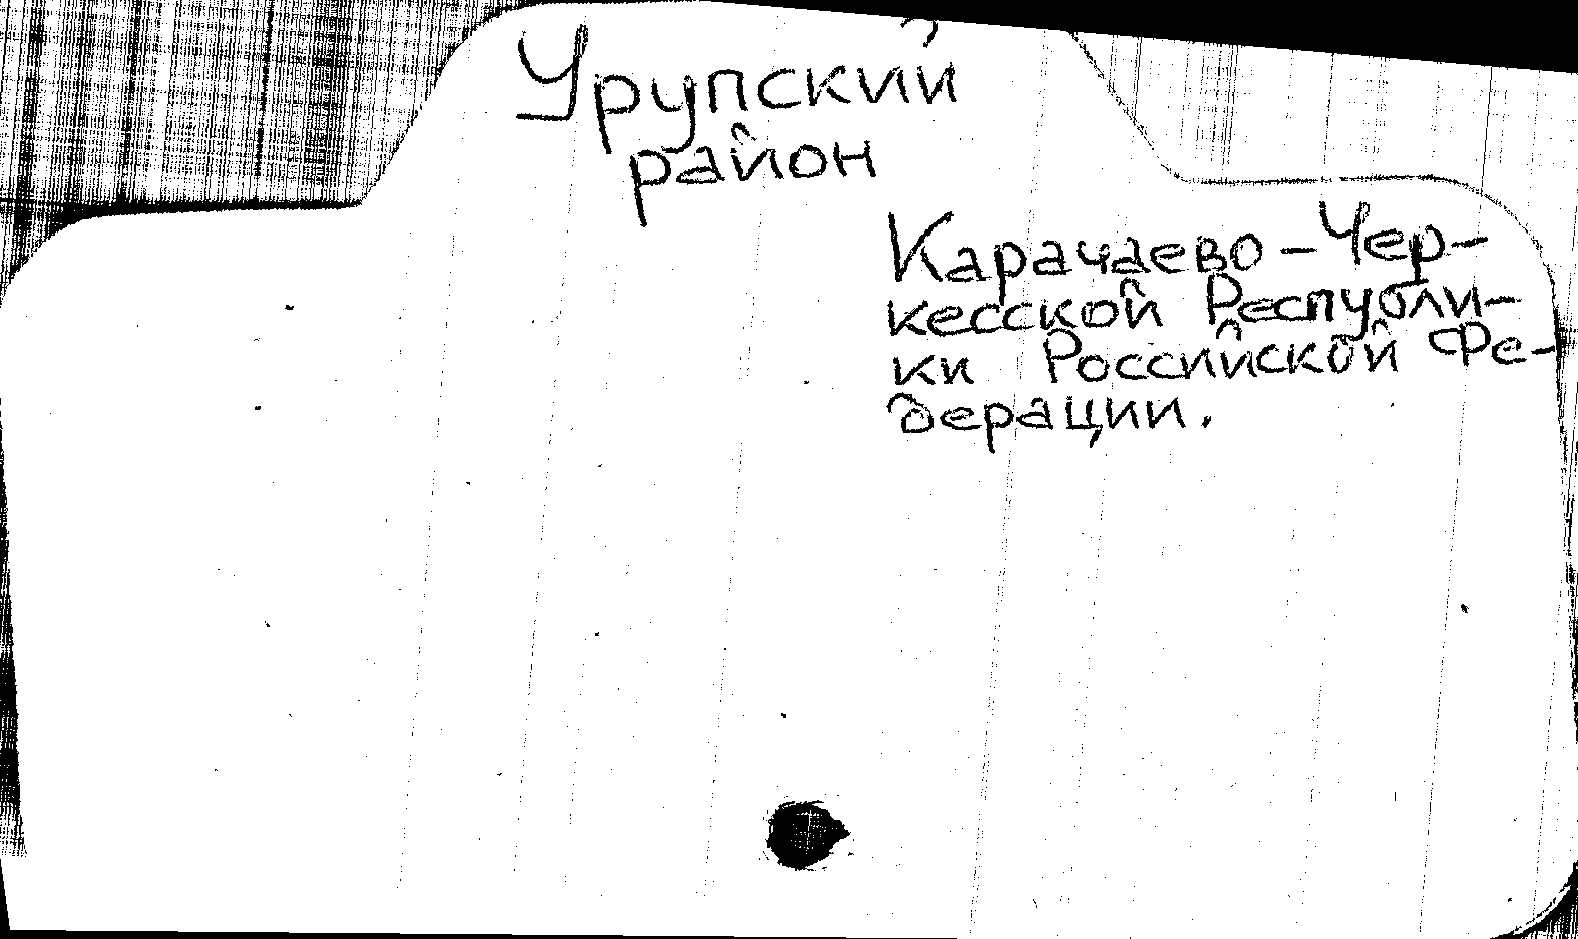 Урупский
район
Карачаево-Чер-
кесской Республи-
ки Российской Фе-
дерации.